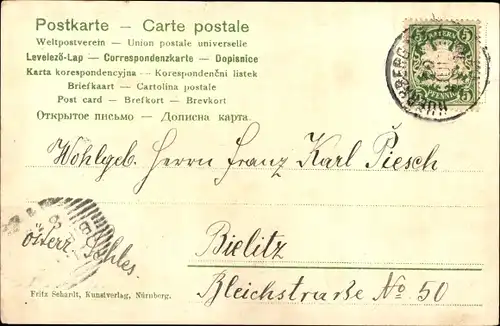 Postkarte – Carte postale
Weltpostverein – Union postale universelle
Levelező-Lap – Correspondenzkarte – Dopisnice
Karta korespondencyjna – Korespondenční listek
Briefkaart – Cartolina postale
Post card – Brefkort – Brevkort
Открытое письмо – Дописна карта.
BAYERN
5 5
PFENNIG
Wohlgeb. Herrn Franz Karl Piesch
österr. Schles
Bielitz
Bleichstraße No 50
Fritz Schardt, Kunstverlag, Nürnberg.